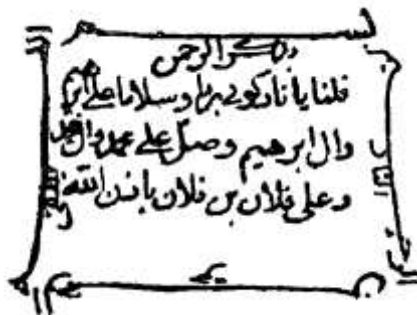 بسم الله الرحمن
قلنا يا نار كوني بردا وسلاما على ابرهيم
وال ابرهيم وصل على محمد وال محمد
وعلى فلان بن فلان باذن الله